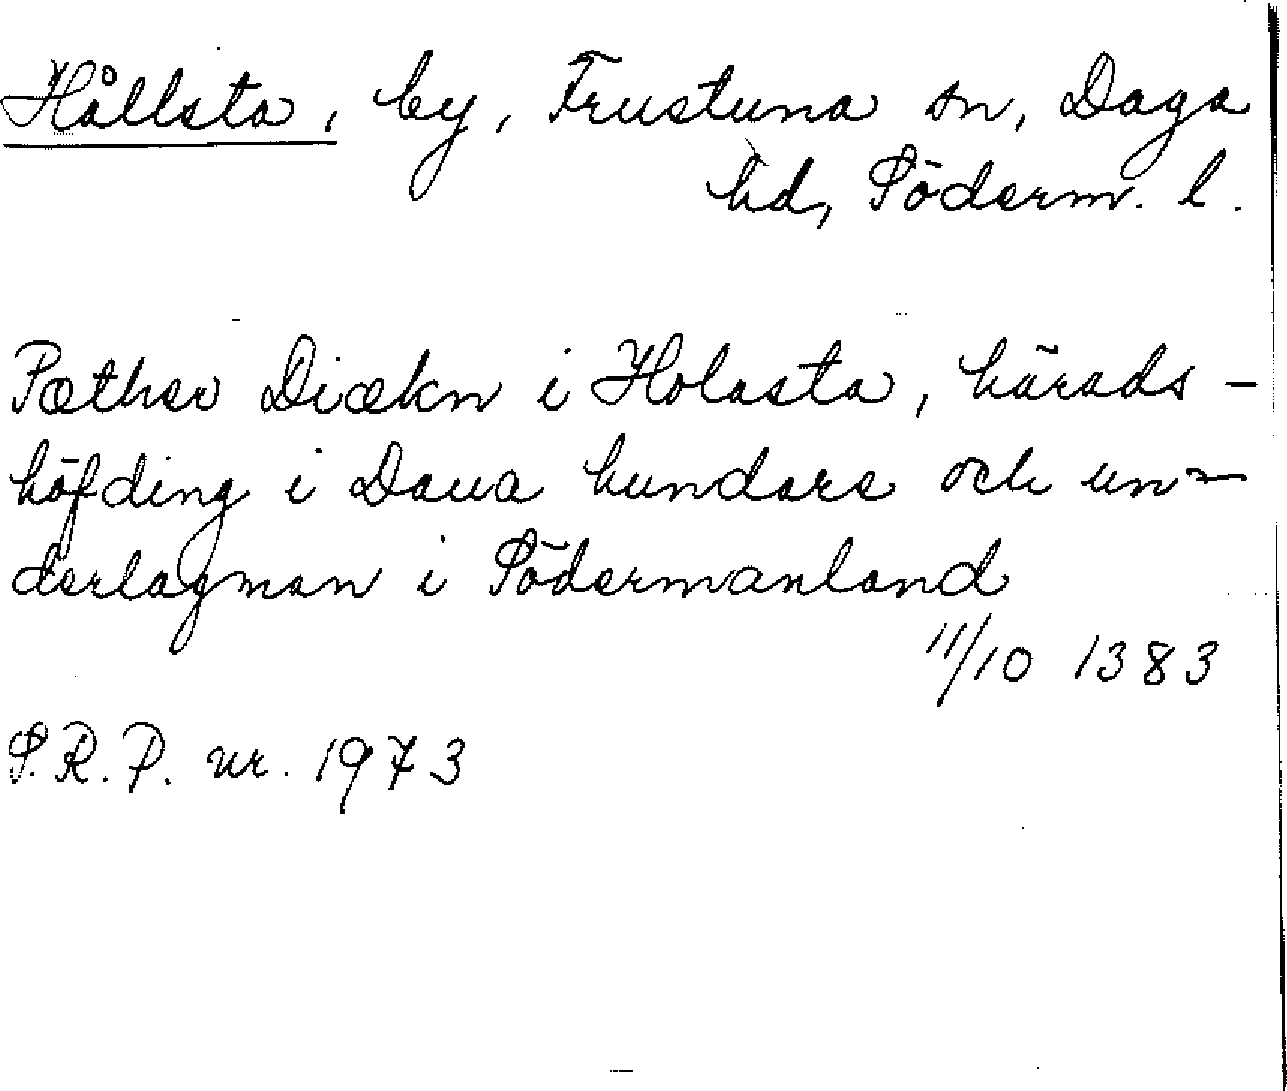 Hållsta, by, Frustuna sn, Daga
hd, Söderm. l.
Pæther Diækn i Holasta, härads-
höfding i Daua hundare och un-
derlagman i Södermanland
11/10 1383
S.R.P. nr. 1973